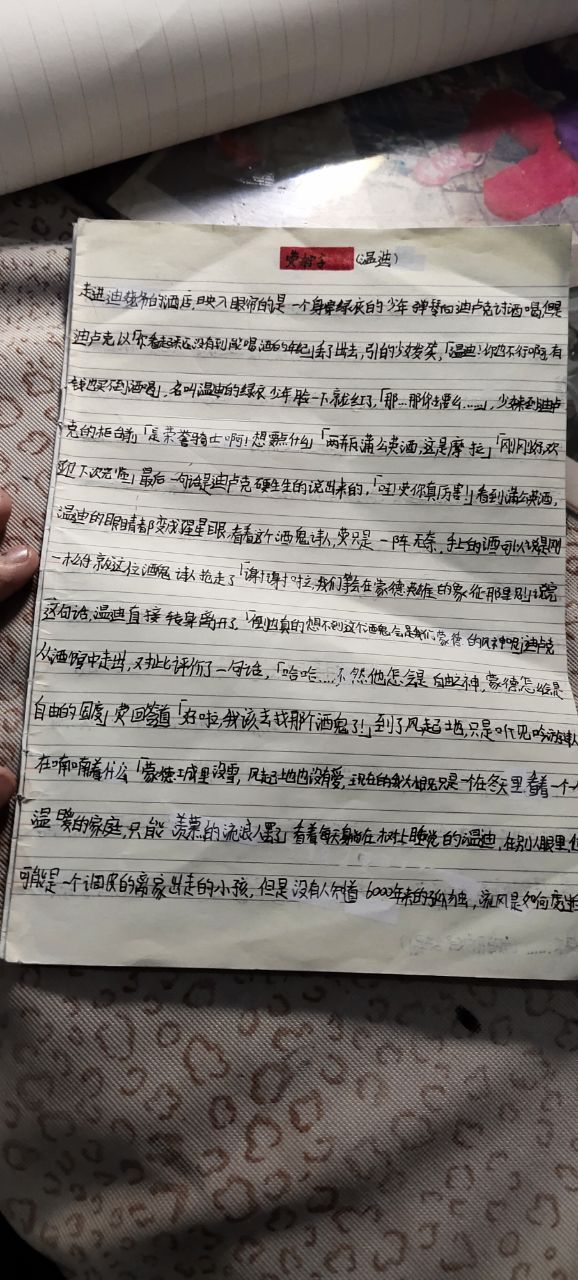 荧 (温迪)
走进迪 的酒店,映入眼帘的是一个身穿绿衣的少年弹琴向迪卢克讨酒喝但是
迪卢克以「你看起来还没有到能喝酒的年纪」丢了出去,引的少女发笑,「温迪!你 不行啊,有
钱也买不到酒喝」,名叫温迪的绿衣少年脸一下就红了,「那…那你去要么……」,少女来到迪卢
克的柜台前「是荣誉骑士啊!想要点什么」「两瓶蒲公英酒,这是摩拉」「刚刚好,欢
迎下次光临」最后一句话是迪卢克硬生生的说出来的,「哇!荧你真厉害!」看到蒲公英酒,
温迪的眼睛都变成了星星眼,看着这个酒鬼诗人,荧只是一阵无奈,手上的酒可以说是刚
一 就这位酒鬼诗人抢走了「谢谢啦,我们 在蒙德英雄的象征那里 」
这句话,温迪直接转身离开了「 真的想不到这个酒鬼会是我们蒙德的风神呢」迪卢克
从酒馆中走出,对此评价了一句话,「哈哈……不然他怎么会是自由之神,蒙德怎么会是
自由的国度」荧回答道「好啦,我该去找那个酒鬼了!」到了风起地,只是听见吟游诗人
在喃喃着什么「蒙德城里没雪,风起地也没有爱,现在的我 只是一个在冬天里看着一个个
温暖的家庭,只能羡慕的流浪人罢了」看着每天躺在树上睡觉的温迪,在别人眼里他
可能是一个调皮的离家出走的小孩,但是没有人知道6000年来的孤独,流风是如何度过